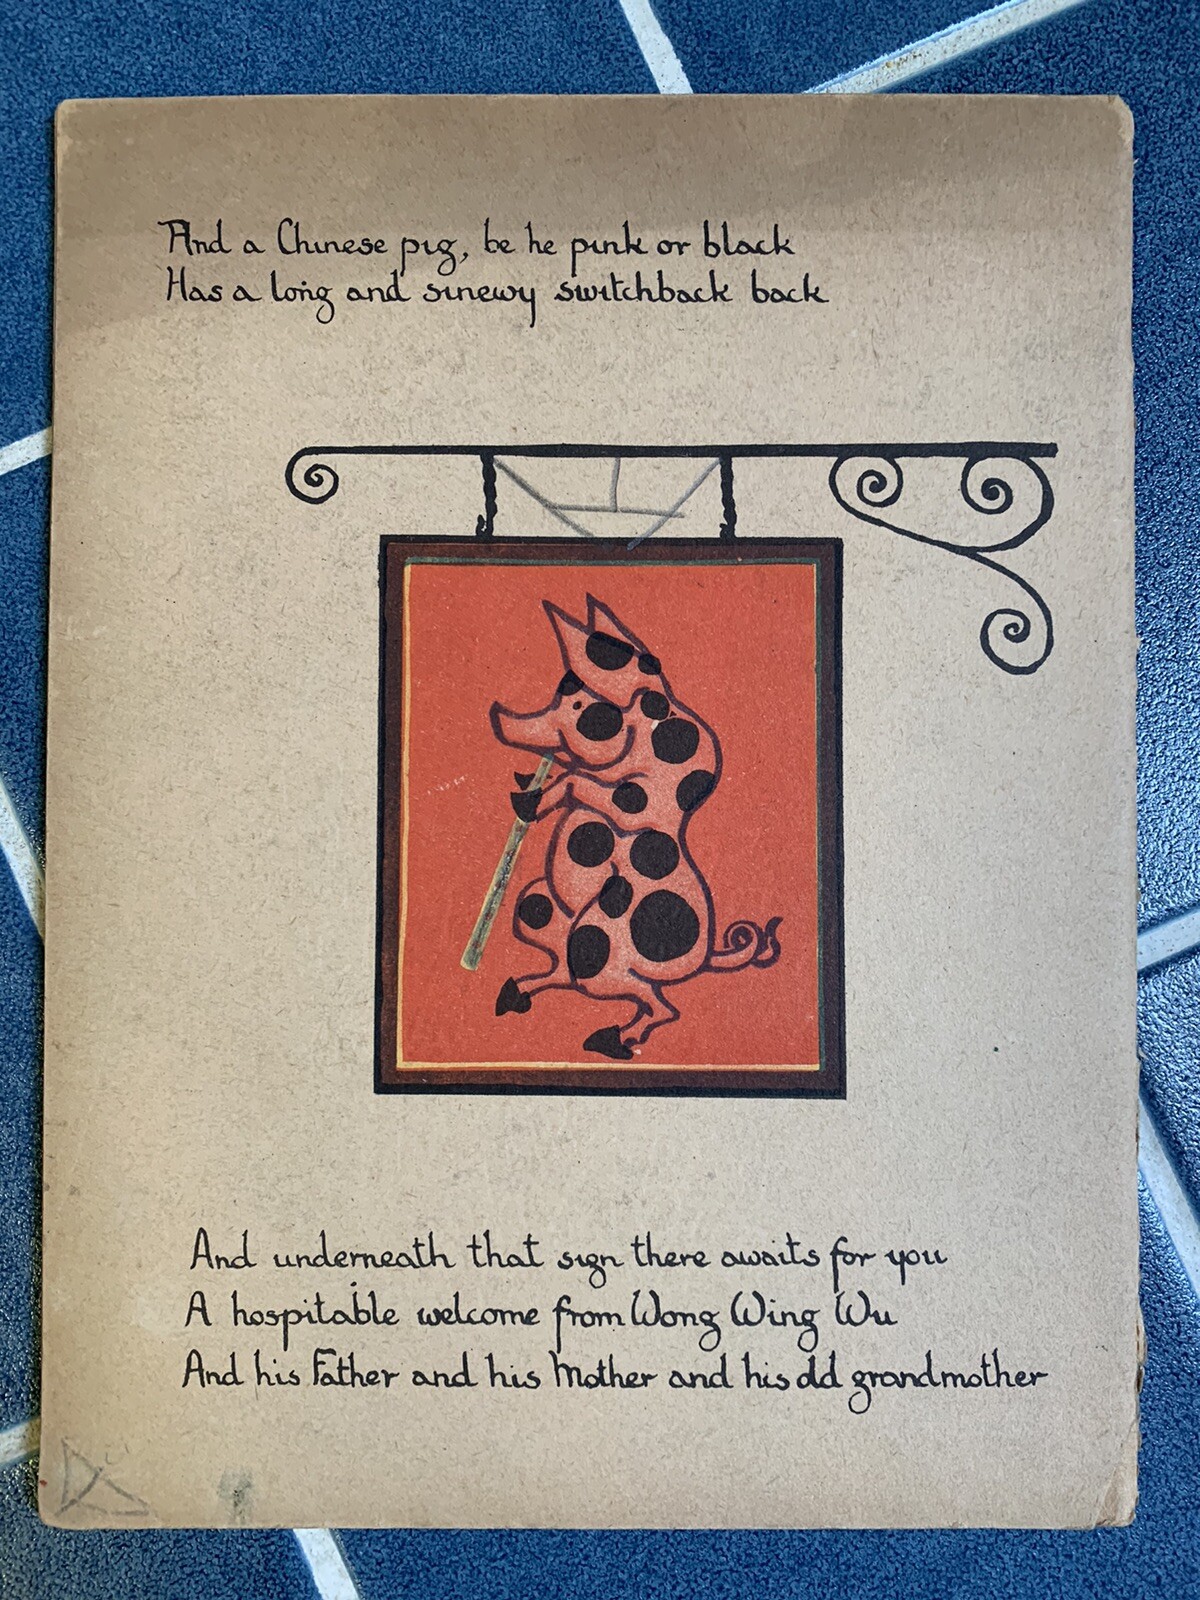 And a Chinese pig, be he pink or black
Has a long and sinewy switchback back
And underneath that sign there awaits for you
A hospitable welcome from Wong Wing Wu
And his Father and his Mother and his old grandmother